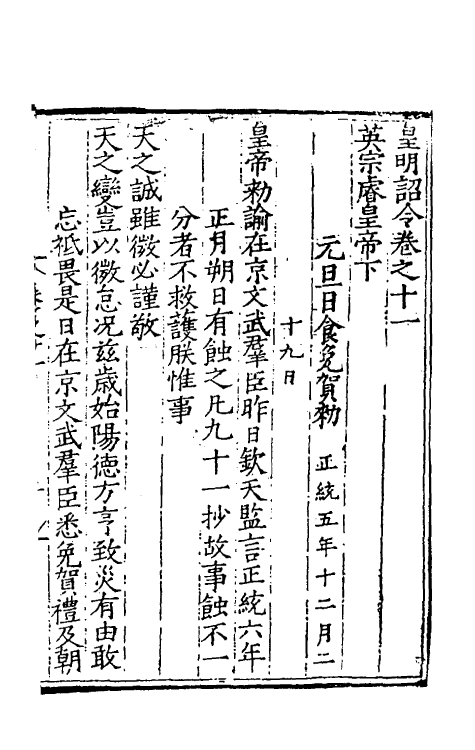 皇明詔令卷之十一
英宗睿皇帝下
元旦日食免賀勑 正統五年十二月二
十九日
皇帝勑諭在京文武羣臣昨日欽天監言正統六年
正月朔日有蝕之凡九十一抄故事蝕不一
分者不救護朕惟事
天之誠雖微必謹敬
天之變豈以微怠况兹歲始陽德方亨致災有由敢
忘祇畏是日在京文武羣臣悉免賀禮及朝